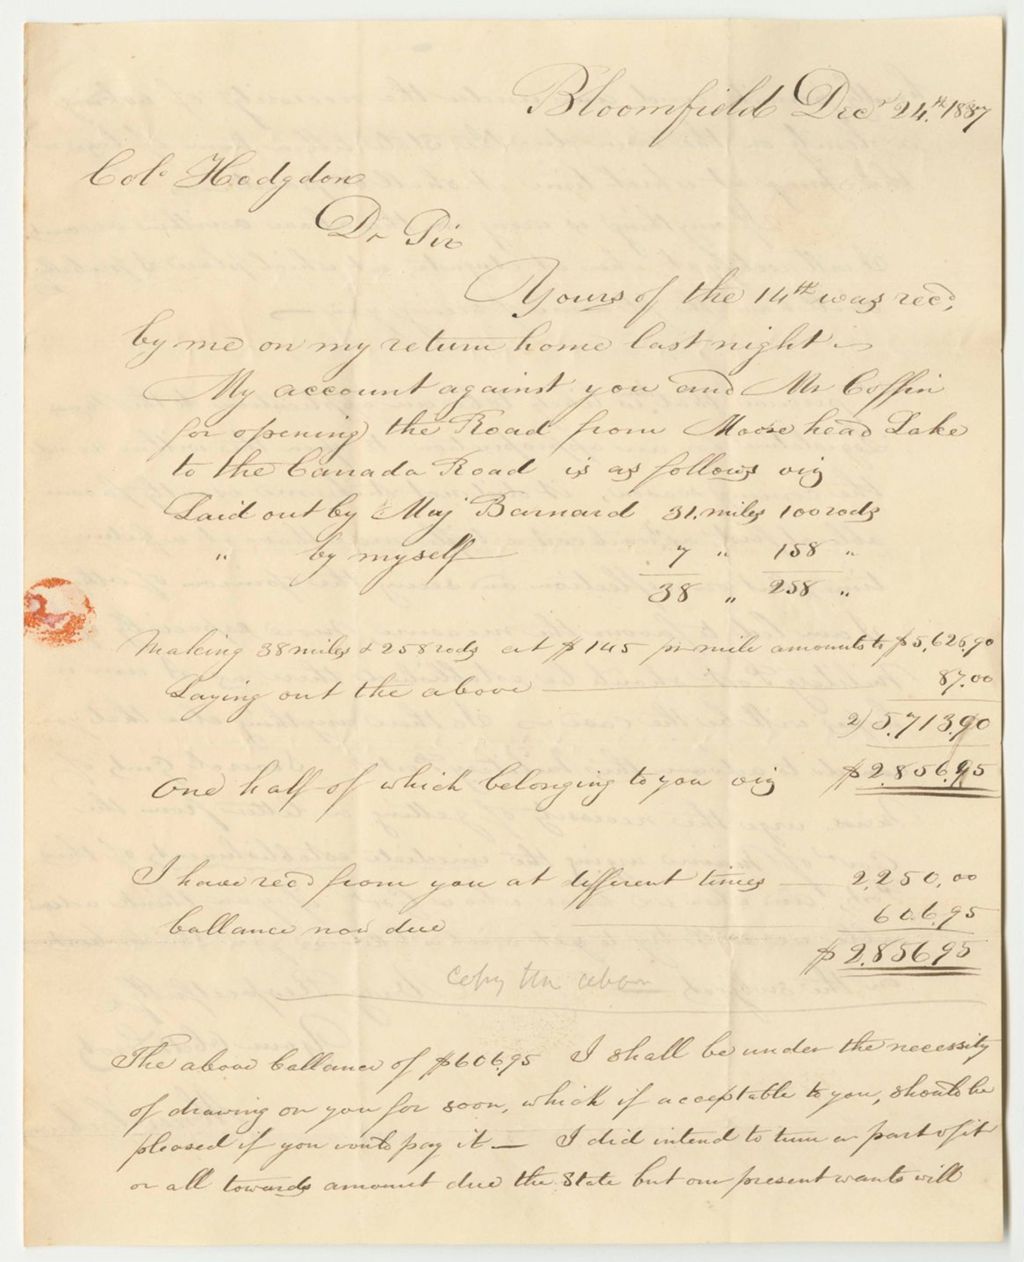 Bloomfield Decr 24.th 1837
Colo Hodgdon
Dr Sir
Yours of the 14th was recd,
by me on my return home last night –
My account against you and Mr Coffin
for opening the Road from Moose head Lake
to the Canada Road is as follows viz
Laid out by Maj Barnard 31. miles 100 rods
" by myself 7 " 158 "
38 " 258 "
Making 38 miles & 258 rods at $145 pr mile amounts to $5,626.90
Laying out the above 87.00
2) 5.713.90
One half of which belonging to you viz $2.856.95
I have recd from you at different times — 2,250,00
ballance now due 606.95
$2.856.95
copy the above
The above ballance of $606.95 I shall be under the necessity
of drawing on you for soon, which if acceptable to you, should be
pleased if you would pay it — I did intend to turn a part of it
or all towards amount due the State but our present wants will